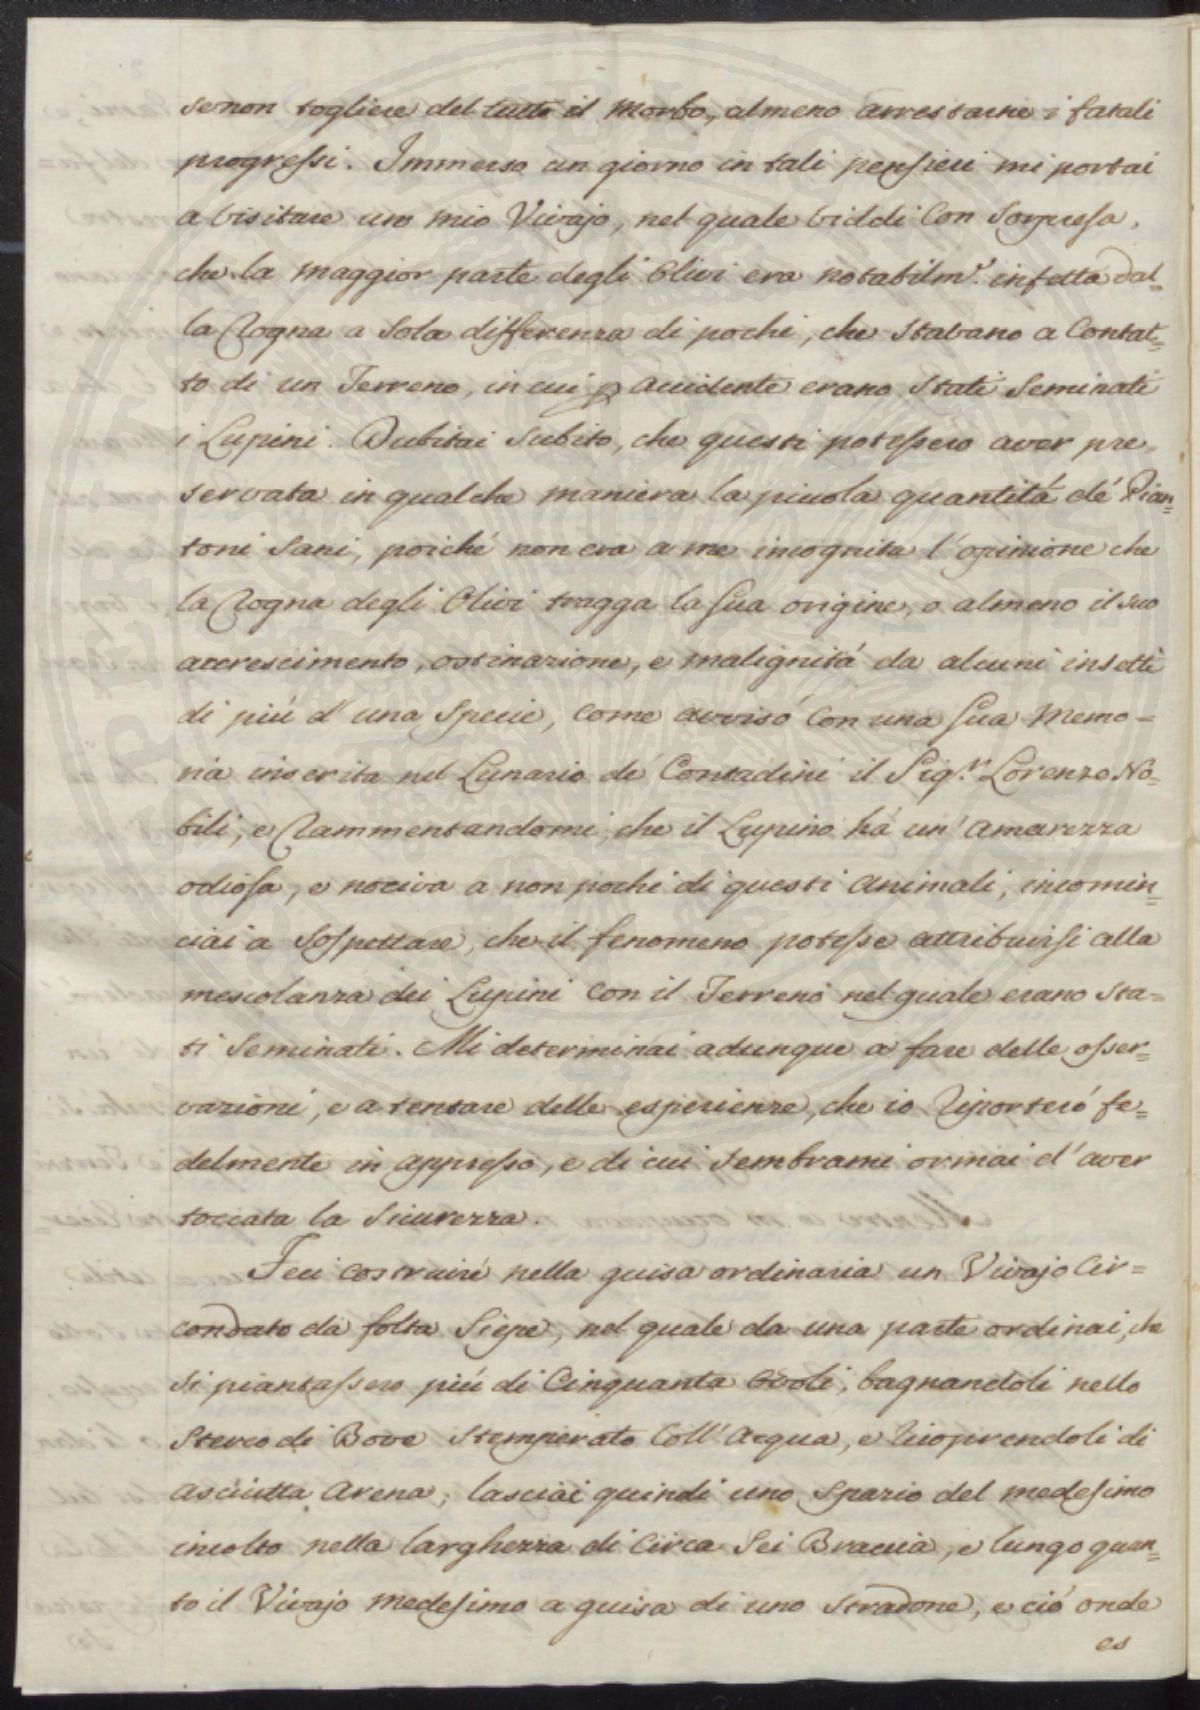 senon togliere del tutto il Morbo, almeno arrestarne i fatali
progressi. Immerso un giorno in tali pensieri mi portai
a visitare un mio Vivajo, nel quale viddi con sorpresa,
che la maggior parte degli Olivi era notabilm.e infetta dal=
la Rogna a sola differenza di pochi, che stavano a contat=
to di un Terreno, in cui p accidente erano stati seminati
i Lupini. Dubitai subito, che questi potessero aver pre=
servata in qualche maniera la piccola quantitá de' Pian=
toni sani, poiché non era a me incognita l'opinione che
la Rogna degli Olivi tragga la sua origine, o almeno il suo
accrescimento, ostinazione, e malignitá da alcuni insetti
di piú d'una specie, come avvisó con una sua Memo=
ria inserita nel Lunario de' Contadini il Sig.r Lorenzo No=
bili, e Rammentandomi, che il Lupino há un'amarezza
odiosa, e nociva a non pochi di questi animali, incomin=
ciai a sospettare, che il fenomeno potesse attribuirsi alla
mescolanza dei Lupini con il Terreno nel quale erano sta=
ti seminati. Mi determinai adunque a fare delle osser=
vazioni, e a tentare delle esperienze, che io riporteró fe=
delmente in appresso, e di cui sembrami ormai d'aver
toccata la sicurezza.
Feci costruire nella guisa ordinaria un Vivajo cir=
condato da folta siepe, nel quale da una parte ordinai, che
si piantassero piú di cinquanta Ovoli, bagnandoli nello
sterco di Bove stemperato coll'acqua, e ricoprendoli di
asciutta arena; lasciai quindi uno spazio del medesimo
incolto nella larghezza di circa sei Braccia, e lungo quan=
to il Vivajo medesimo a guisa di uno stradone, e ció onde
es